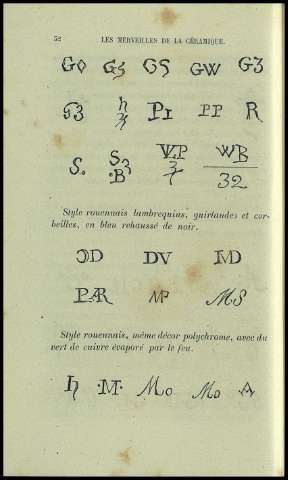 58 LES MERVEILLES DE LA CÉRAMIQUE.
GO G5 G5 GW G3
S. WB
32
Style rouennais lambrequins, guirlandes et cor-
beilles, en bleu rehaussé de noir.
DV
MS
Style rouennais, même décor polychrome, avec du
vert de cuivre évaporé par le feu.
·M· Mo Mo A